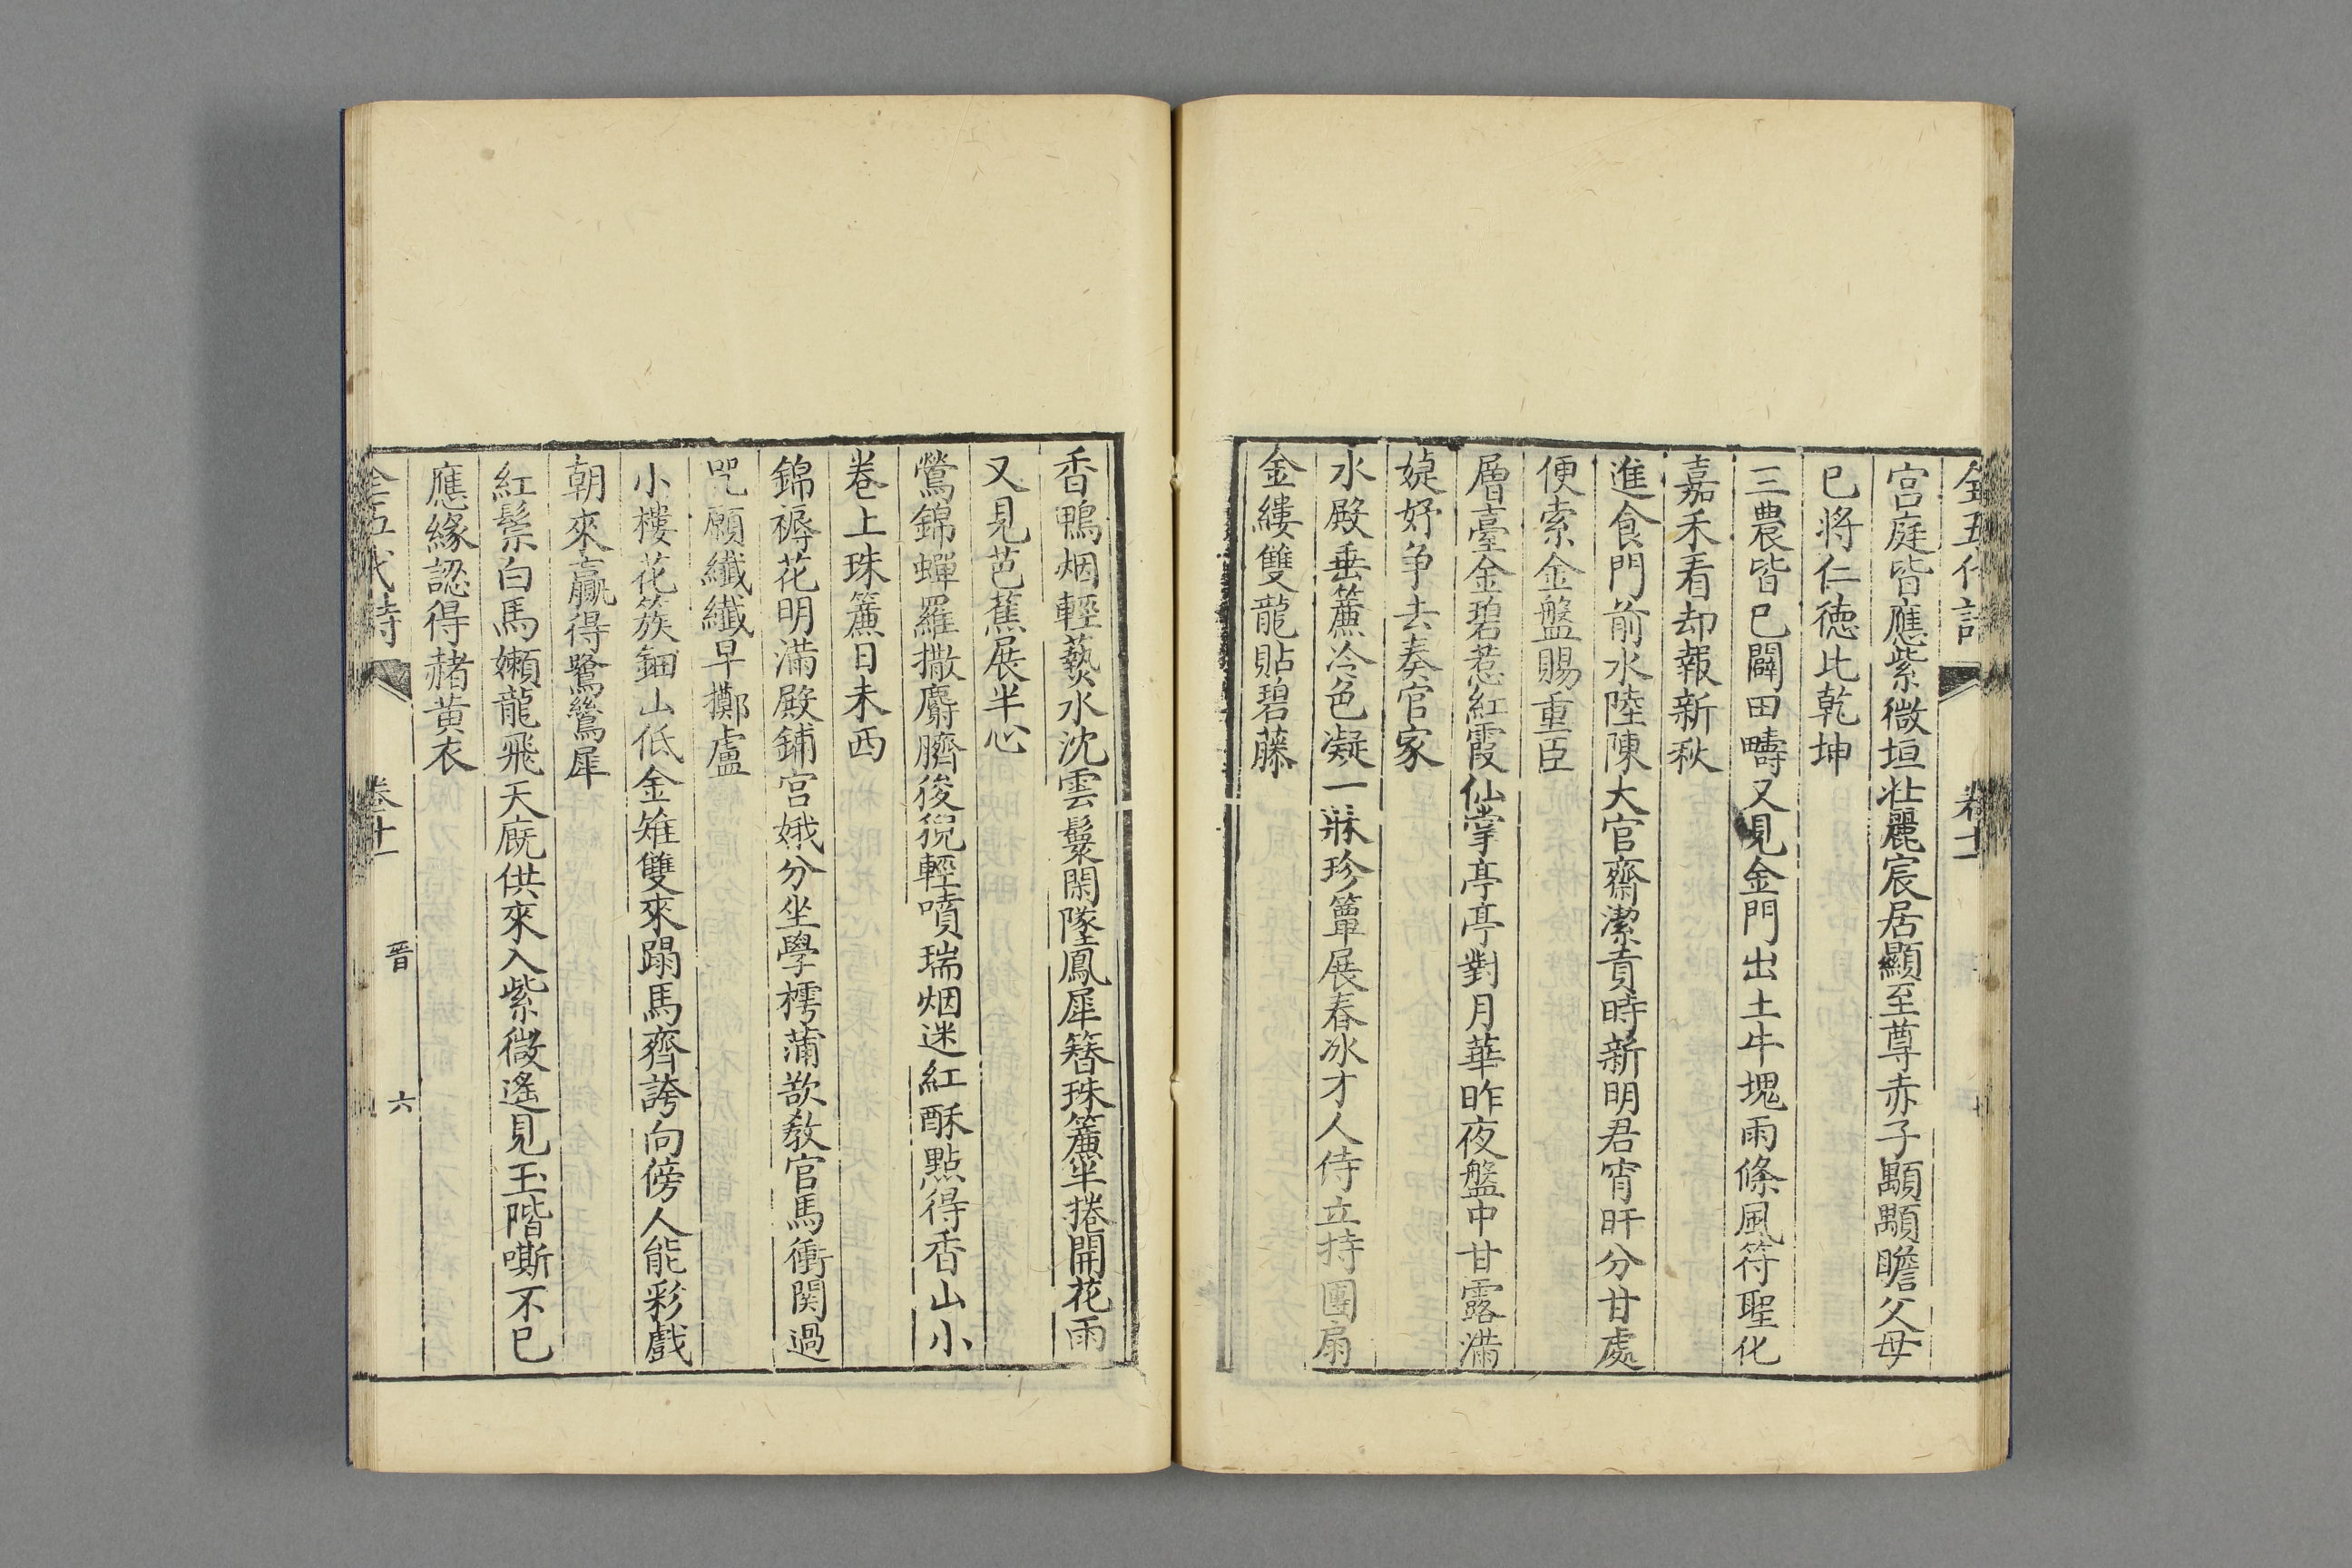 全五代詩 卷十一
宮庭皆應紫微垣壯麗宸居顯至尊赤子顒顒瞻父母
已將仁德比乾坤
三農皆已闢田疇又見金門出土牛塊雨條風符聖化
嘉禾看却報新秋
進食門前水陸陳大官齋潔責時新明君宵旰分甘處
便索金盤賜重臣
層臺金碧惹紅霞仙掌亭亭對月華昨夜盤中甘露滿
婕妤争去奏官家
水殿垂簾冷色凝一牀珍簟展春冰才人侍立持團扇
金縷雙龍貼碧藤
香鴨烟輕爇水沈雲鬟閑墜鳳犀簪珠簾半捲開花雨
又見芭蕉展半心
鶯錦蟬羅撒麝臍狻猊輕噴瑞烟迷紅酥點得香山小
卷上珠簾日未西
錦褥花明滿殿鋪宮娥分坐學樗蒲欲教官馬衝関過
咒願纖纖早擲盧
小樓花簇鈿山低金雉雙來蹋馬齊誇向傍人能彩戲
朝來贏得鷺鷥犀
紅鬃白馬嬾龍飛天厩供來入紫微遙見玉階嘶不已
應緣認得赭黃衣
全五代詩 卷十一 晋 六